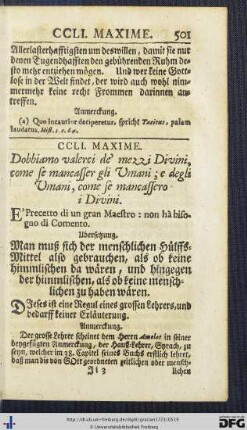 CCLI. MAXIME. 501
Allerlasterhafftigsten um deswillen, damit sie nur
denen Tugendhafften den gebührenden Ruhm de-
sto mehr entziehen mögen. Und wer keine Gott-
lose in der Welt findet, der wird auch wohl nim-
mermehr keine recht Frommen darinnen an-
treffen.
Anmerckung.
(a) Quo incautior deciperetur, spricht Tacitus, palam
laudatus. Hist. 1. c. 64.
CCLI. MAXIME.
Dobbiamo valerci de' mezzi Divini,
come se mancasser gli Umani; e degli
Umani, come se mancassero
i Divini.
E' Precetto di un gran Maestro: non hà biso-
gno di Comento.
Ubersetzung.
Man muß sich der menschlichen Hülffs-
Mittel also gebrauchen, als ob keine
himmlischen da wären, und hingegen
der himmlischen, als ob keine mensch-
lichen zu haben wären.
Dieses ist eine Regul eines grossen Lehrers, und
bedarff keiner Erläuterung.
Anmerckung.
Der grosse Lehrer scheinet dem Herrn Amelot in seiner
beygefügten Anmerckung, der Hauß-Lehrer, Syrach, zu
seyn, welcher im 38. Capitel seines Buchs erstlich lehret,
daß man die von GOtt geordneten geistlichen oder mensch-
Ji 3 lichen